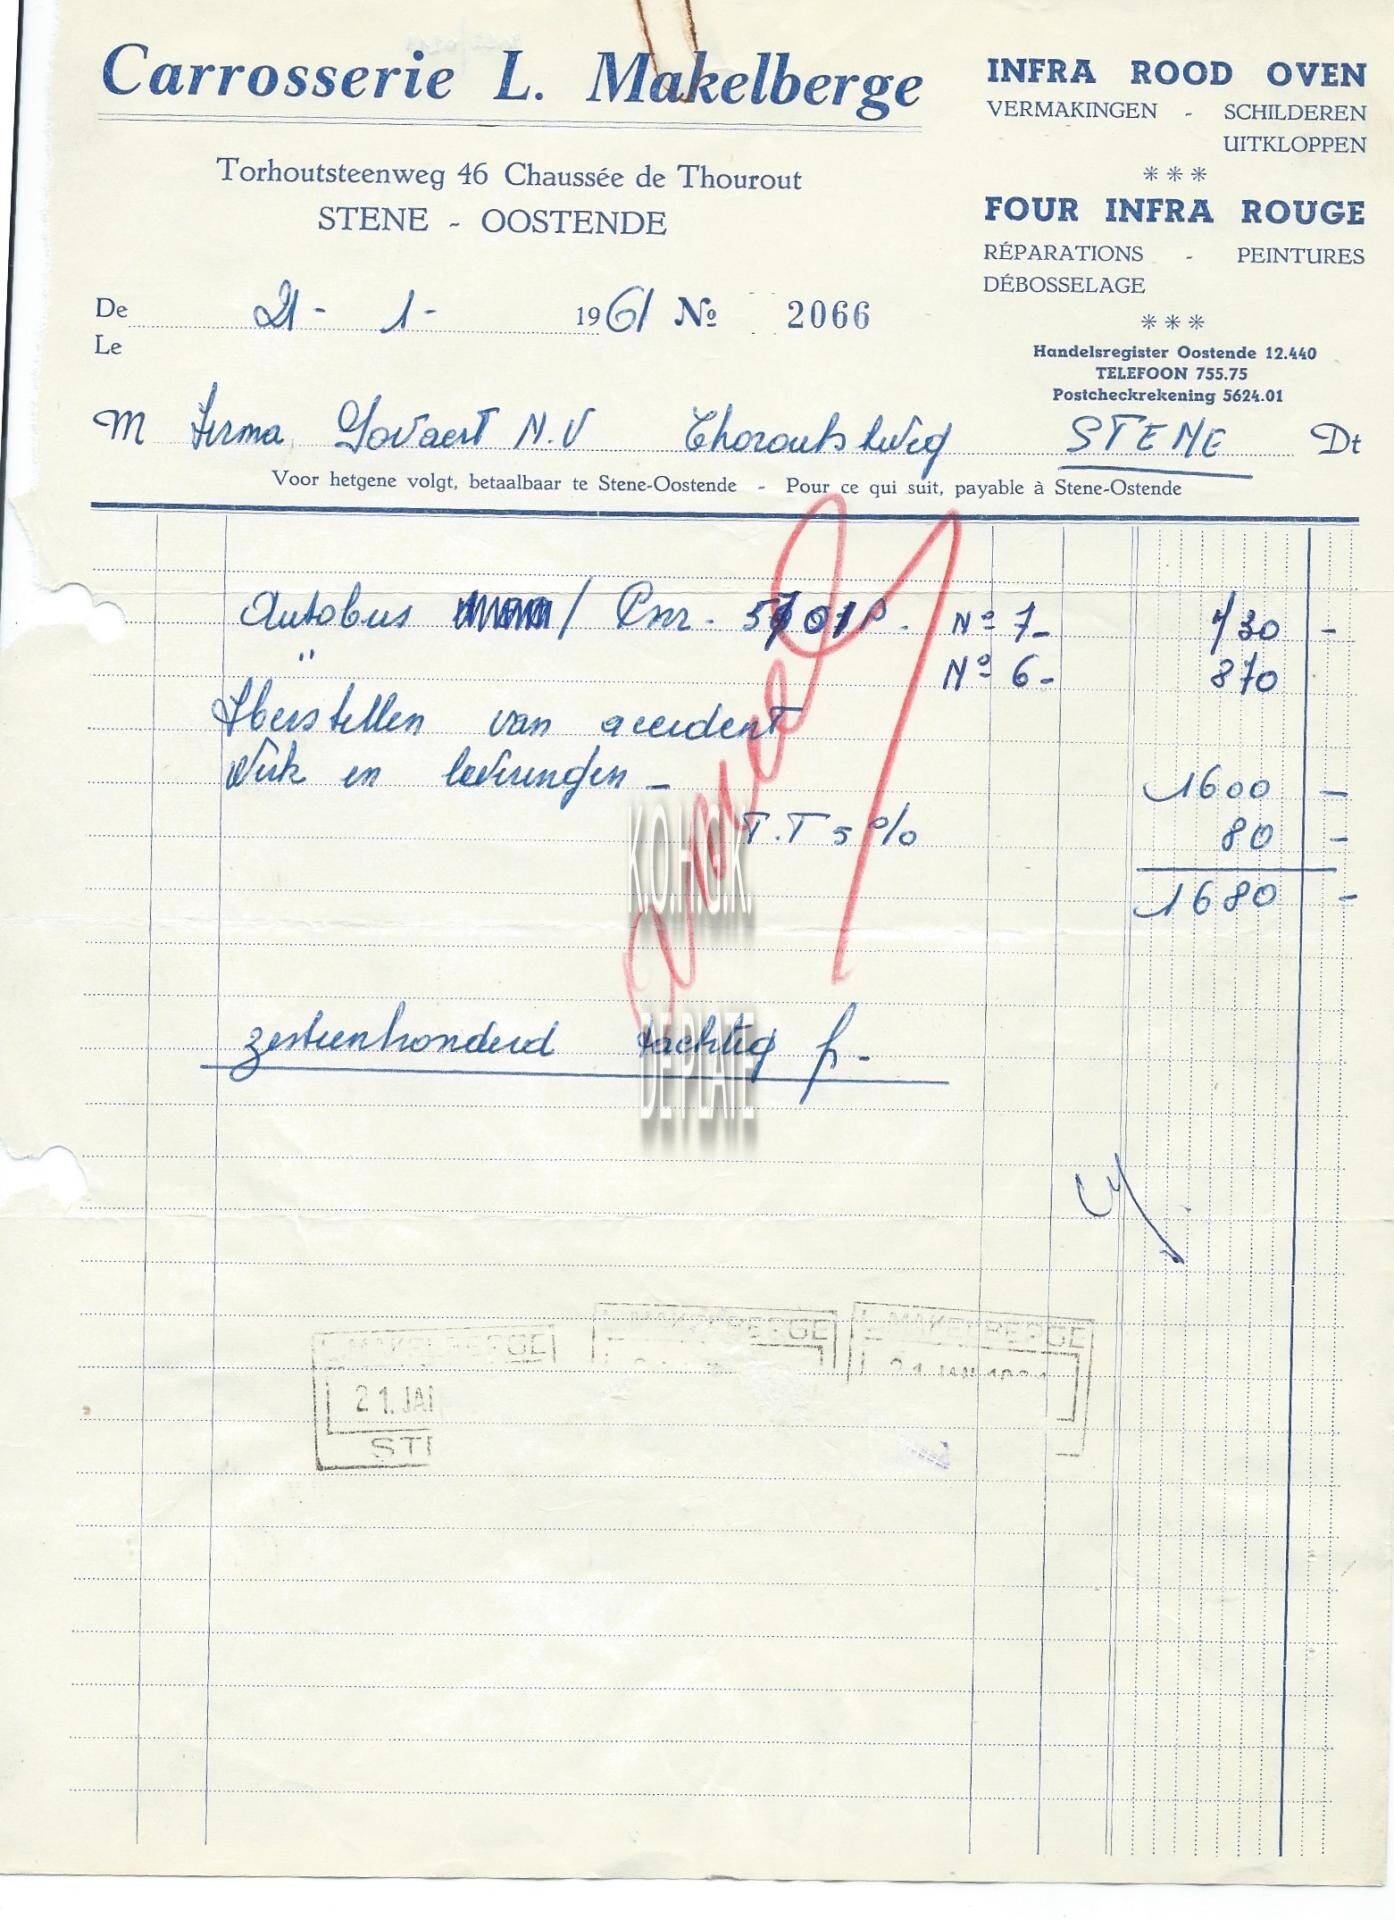 Carrosserie L. Makelberge
Torhoutsteenweg 46 Chaussée de Thourout
STENE - OOSTENDE
INFRA ROOD OVEN
VERMAKINGEN - SCHILDEREN
UITKLOPPEN
***
FOUR INFRA ROUGE
RÉPARATIONS - PEINTURES
DÉBOSSELAGE
***
Handelsregister Oostende 12.440
TELEFOON 755.75
Postcheckrekening 5624.01
De 21 - 1 - 1961 No 2066
Le
M Firma Govaert N.V Thoroutsteweg STENE Dt
Voor hetgene volgt, betaalbaar te Stene-Oostende - Pour ce qui suit, payable à Stene-Ostende
Autobus / No 7 - 730 -
" No 6 - 870
Herstellen van accident
Werk en leveringen - 1600 -
T.T 5 % 80 -
1680 -
KOHGK
DE PLATE
zestienhonderd tachtig fr -
L. MAKELBERGE
21. JAN
L. MAKELBERGE
L. MAKELBERGE
21 JAN